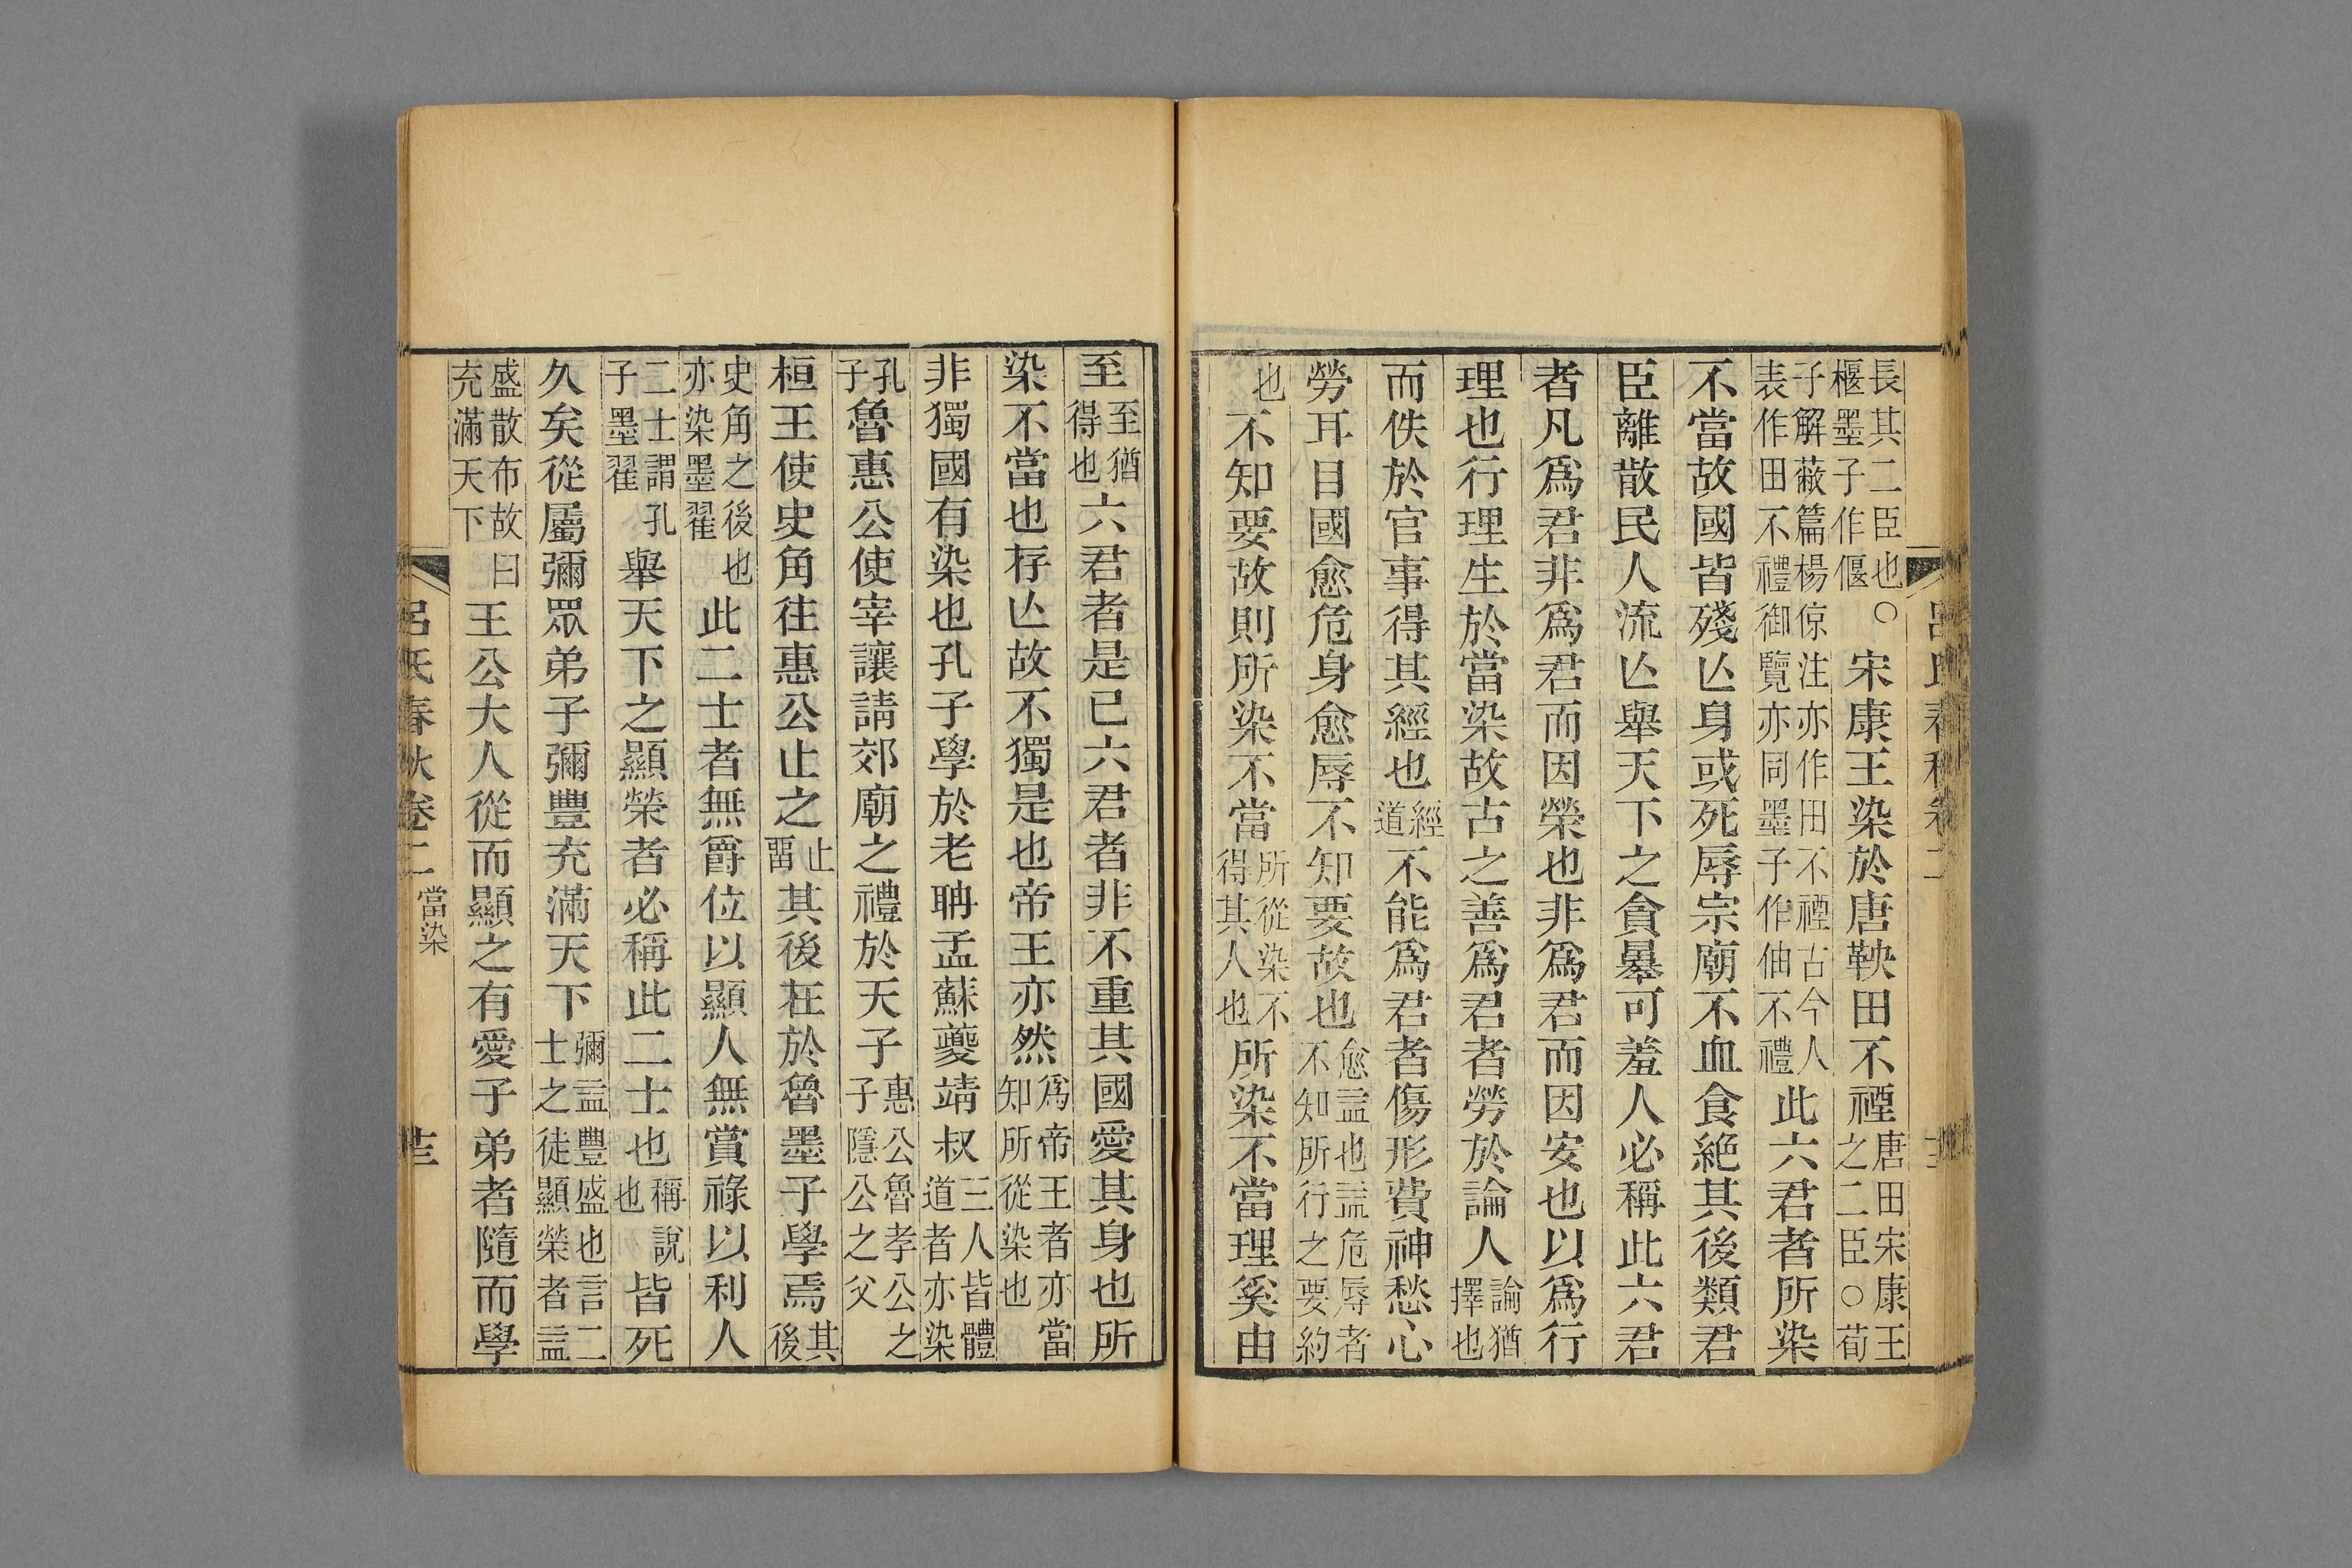 長其二臣也○
楃墨子作偃
宋康王染於唐鞅田不禋
唐田宋康王
之二臣○荀
子解蔽篇楊倞注亦作田不禋古今人
表作田不禮御覽亦同墨子作伷不禮
此六君者所染
不當故國皆殘亾身或死辱宗廟不血食絶其後類君
臣離散民人流亾舉天下之貪暴可羞人必稱此六君
者凡爲君非爲君而因榮也非爲君而因安也以爲行
理也行理生於當染故古之善爲君者勞於論人
論猶
擇也
而佚於官事得其經也
經
道
不能爲君者傷形費神愁心
勞耳目國愈危身愈辱不知要故也
愈益也益危辱者
不知所行之要約
也
不知要故則所染不當
所從染不
得其人也
所染不當理奚由
至
至猶
得也
六君者是已六君者非不重其國愛其身也所
染不當也存亾故不獨是也帝王亦然
爲帝王者亦當
知所從染也
非獨國有染也孔子學於老聃孟蘇夔靖叔
三人皆體
道者亦染
孔
子
魯惠公使宰讓請郊廟之禮於天子
惠公魯孝公之
子隱公之父
桓王使史角往惠公止之
止
畱
其後在於魯墨子學焉
其
後
史角之後也
亦染墨翟
此二士者無爵位以顯人無賞祿以利人
二士謂孔
子墨翟
舉天下之顯榮者必稱此二士也
稱說
也
皆死
久矣從屬彌眾弟子彌豐充滿天下
彌益豐盛也言二
士之徒顯榮者益
盛散布故曰
充滿天下
王公大人從而顯之有愛子弟者隨而學
呂氏春秋卷二
當染